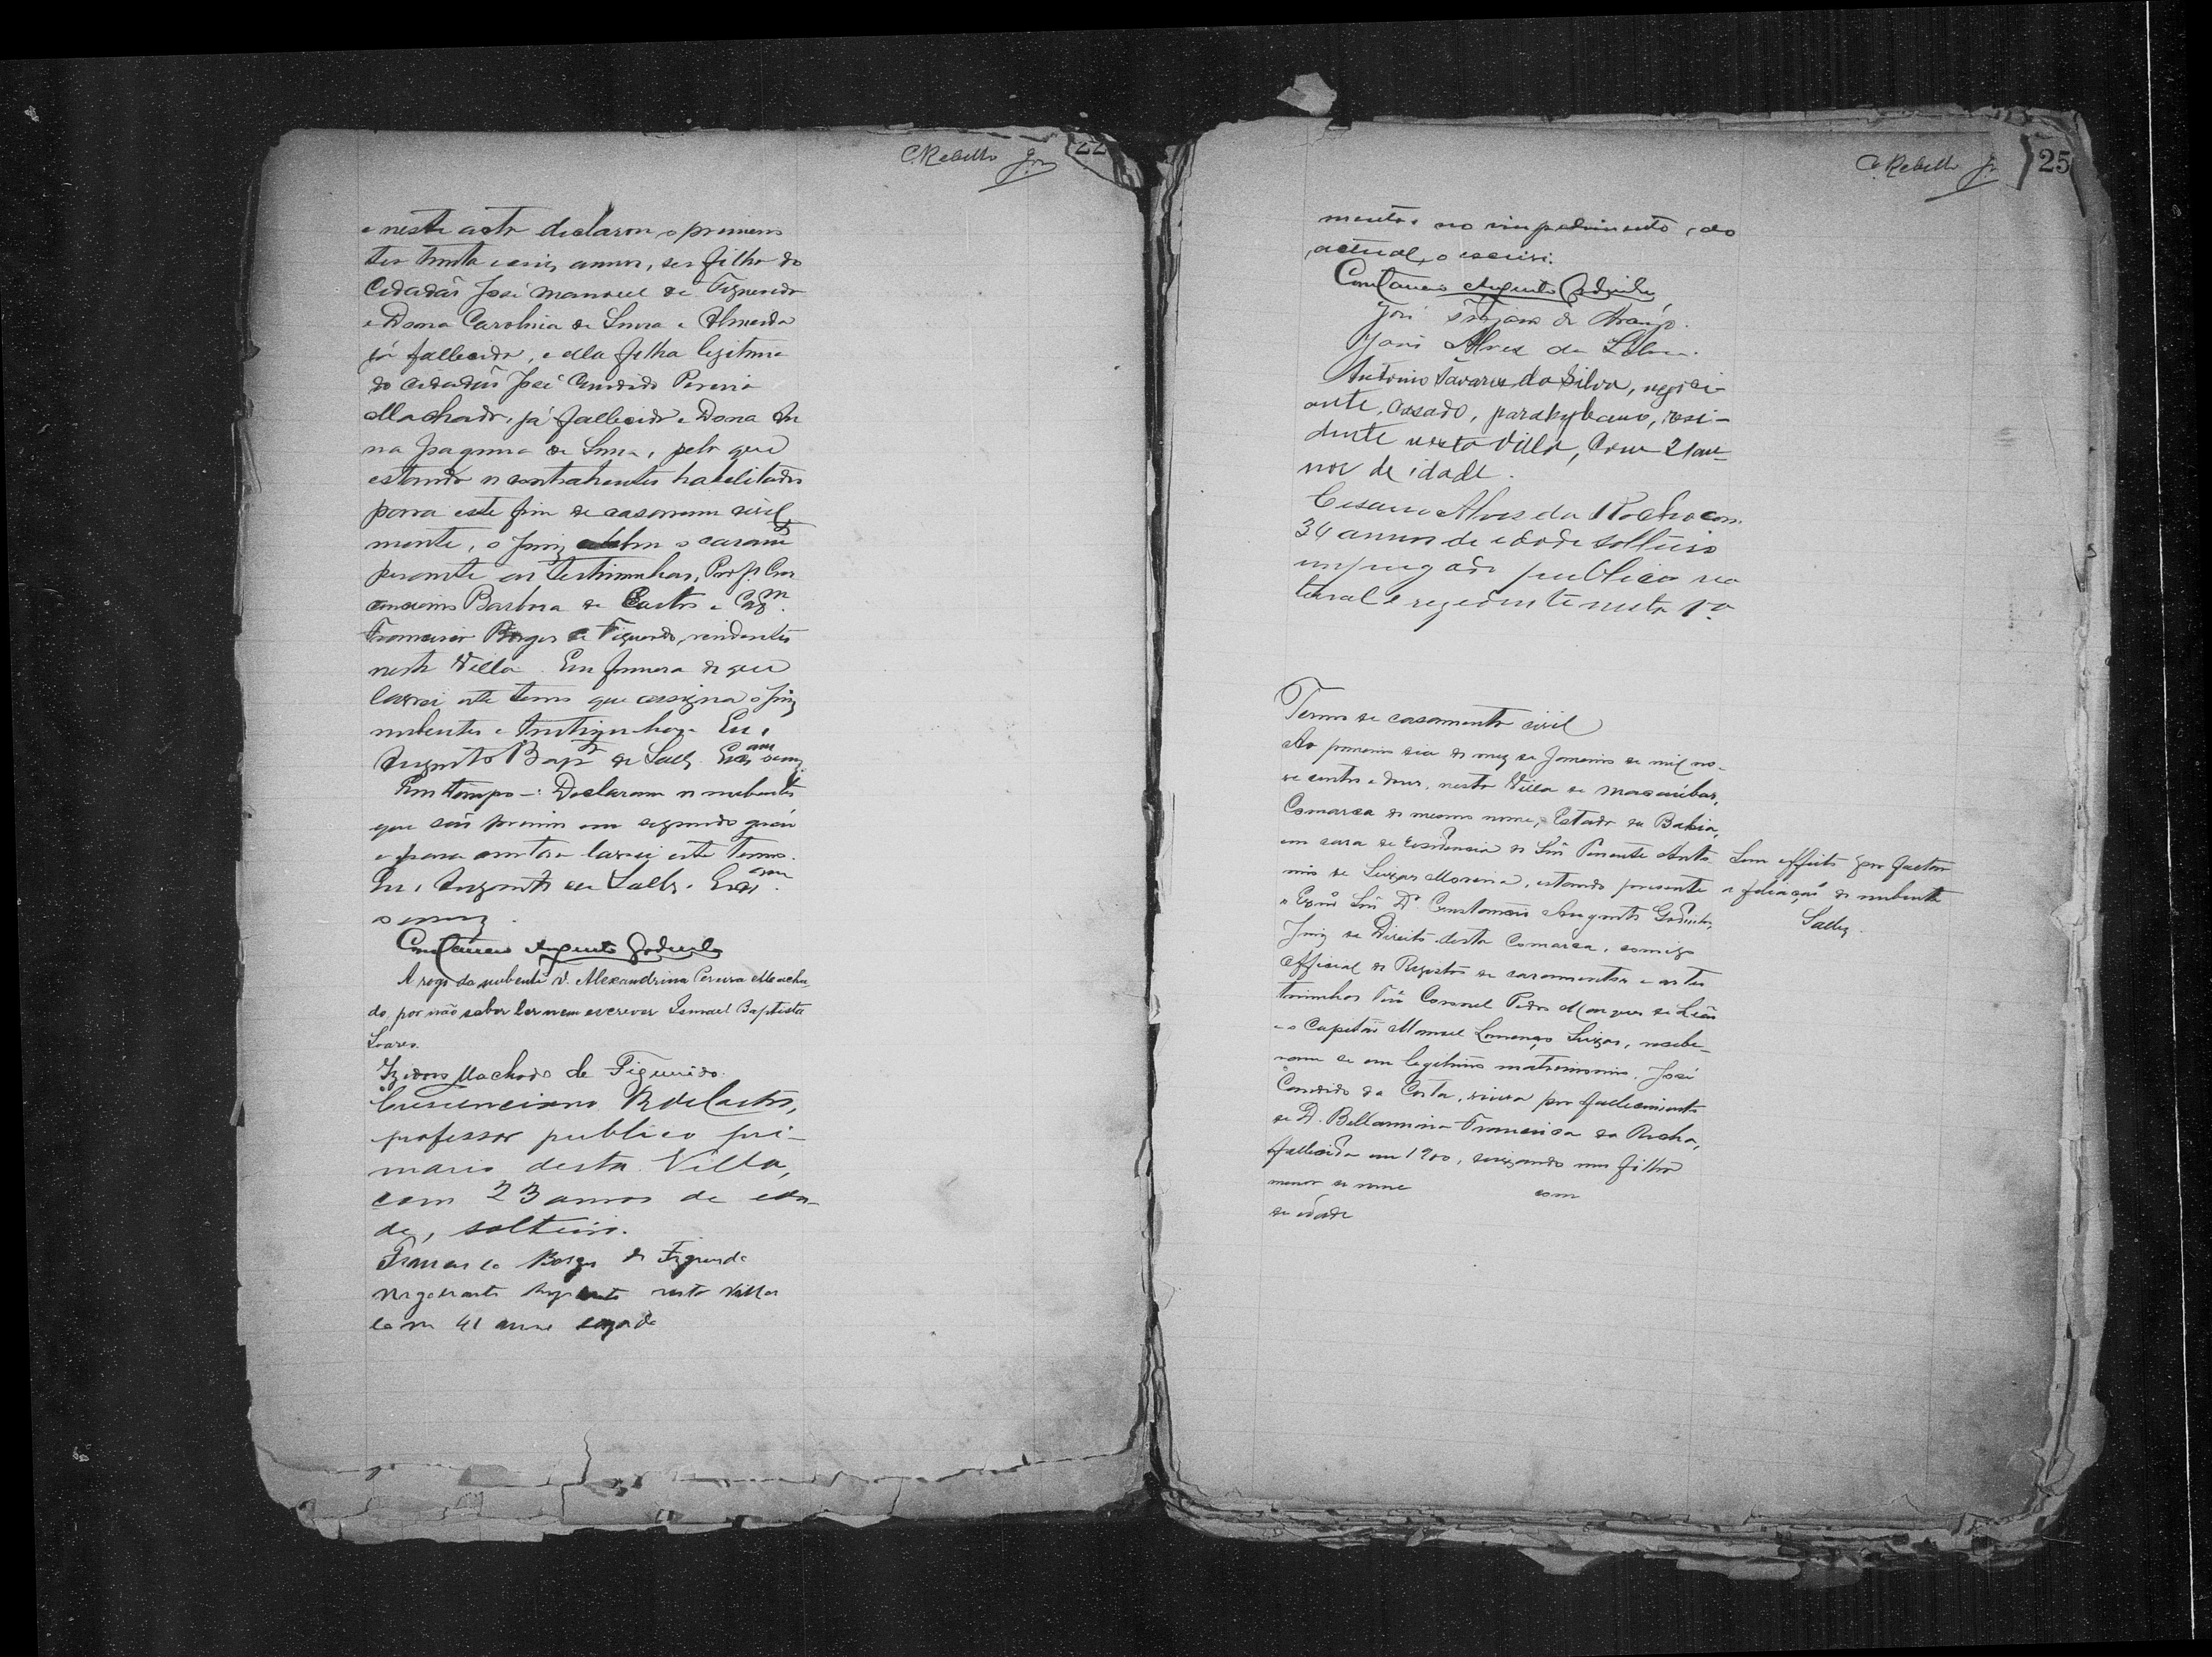 C. Rebello Jor
22
e neste acto declarou o primeiro
ter trinta e seis annos, ser filho do
Cidadão José Manoel de Figueredo
e Dona Carolina de Souza e Almeida
já fallecida, e ella filha legitima
do cidadão José Candido Pereira
Machado, já fallecido e Dona An
na Joaquina de Souza, pelo que
estando os contrahentes habilitados
para este fim de casarem civil
mente, o Juiz os
perante as testimunhas, Profr. Cres
cenciano Barbosa de Castro e Capm.
Francisco Borges de Figueredo, residentes
nesta Villa. Em firmeza do que
lavrei este termo que assigna o Juiz
nubentes e testimunhas. Eu,
Augusto Bapta de Salles Escram
Em tempo -: Declaram os nubentes
que são primos em segundo gráu
e para constar lavrei este termo.
Eu, Augusto de Salles. Escram
o escrevi.
Constancio Augusto Godinho
A rogo da nubente D. Alexandrina Pereira Macha-
do, por não saber ler nem escrever Ismael Baptista
Soares.
Izidoro Machado de Figueiredo.
Crescenciano B. de Castro,
professor publico pri-
mario desta Villa,
com 23 annos de eda-
de, solteiro.
Francisco Borges de Figueredo
Negociante nesta Villa
com 41 annos casado
C. Rebello Jr
25
mentos no impedimento do
actual, o escrivi.
Constancio Augusto Godinho
José de Araujo.
José Alves da Silva.
Antonio Tavares da Silva, negoci-
ante, casado, parahybano, resi-
dente nesta Villa, com 21 an-
nos de idade.
Cesario Alves da Rocha com
34 annos de edade solteiro
impregado publico na
tural e rezidente nesta Va.
Termo de casamento civil
Ao primeiro dia do mez de Janeiro de mil no-
ve centos e dous, nesta Villa de Macaúbas,
Comarca do mesmo nome, Estado da Bahia,
em casa de residencia do Snr Tenente Anto
nio de Souza Moreira, estando presente
o Exmo Snr Dr. Constancio Augusto Godinho,
Juiz de Direito desta Comarca, comigo
Official do Registro de casamentos e as tes
timunhas Tte Coronel Pedro Marques de Leão
e o Capitão Manoel Lourenço Seixas, recebe-
ram se em legitimo matrimonio. José
Candido da Costa, viuvo por fallecimento
de D. Bellarmina Francisca da Rocha,
fallecida em 1900, deixando um filho
menor de nome com
de edade
Sem effeito por faltar
a filiação do nubente
Salles.